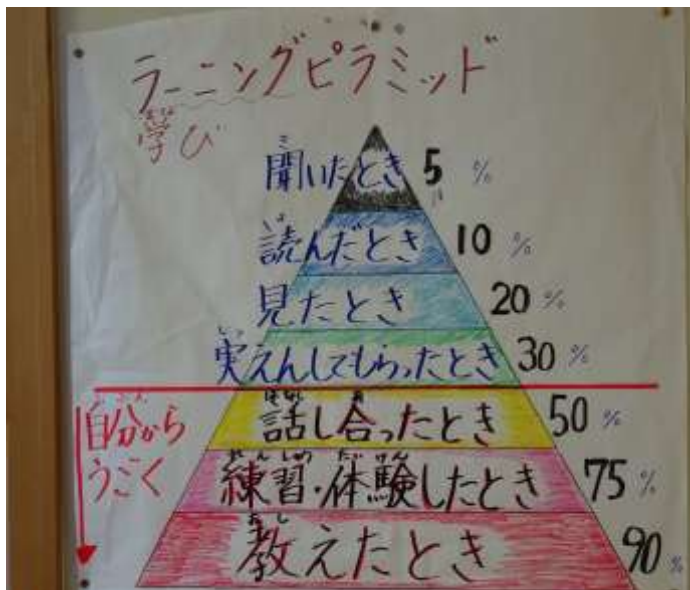 ラーニングピラミッド
学び
聞いたとき 5 %
読んだとき 10 %
見たとき 20 %
実えんしてもらったとき 30 %
自分から
うごく
話し合ったとき 50 %
練習・体験したとき 75 %
教えたとき 90 %